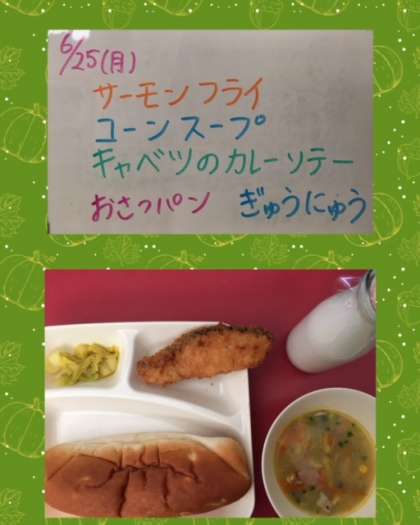 6/25(月)
サーモンフライ
コーンスープ
キャベツのカレーソテー
おさつパン ぎゅうにゅう